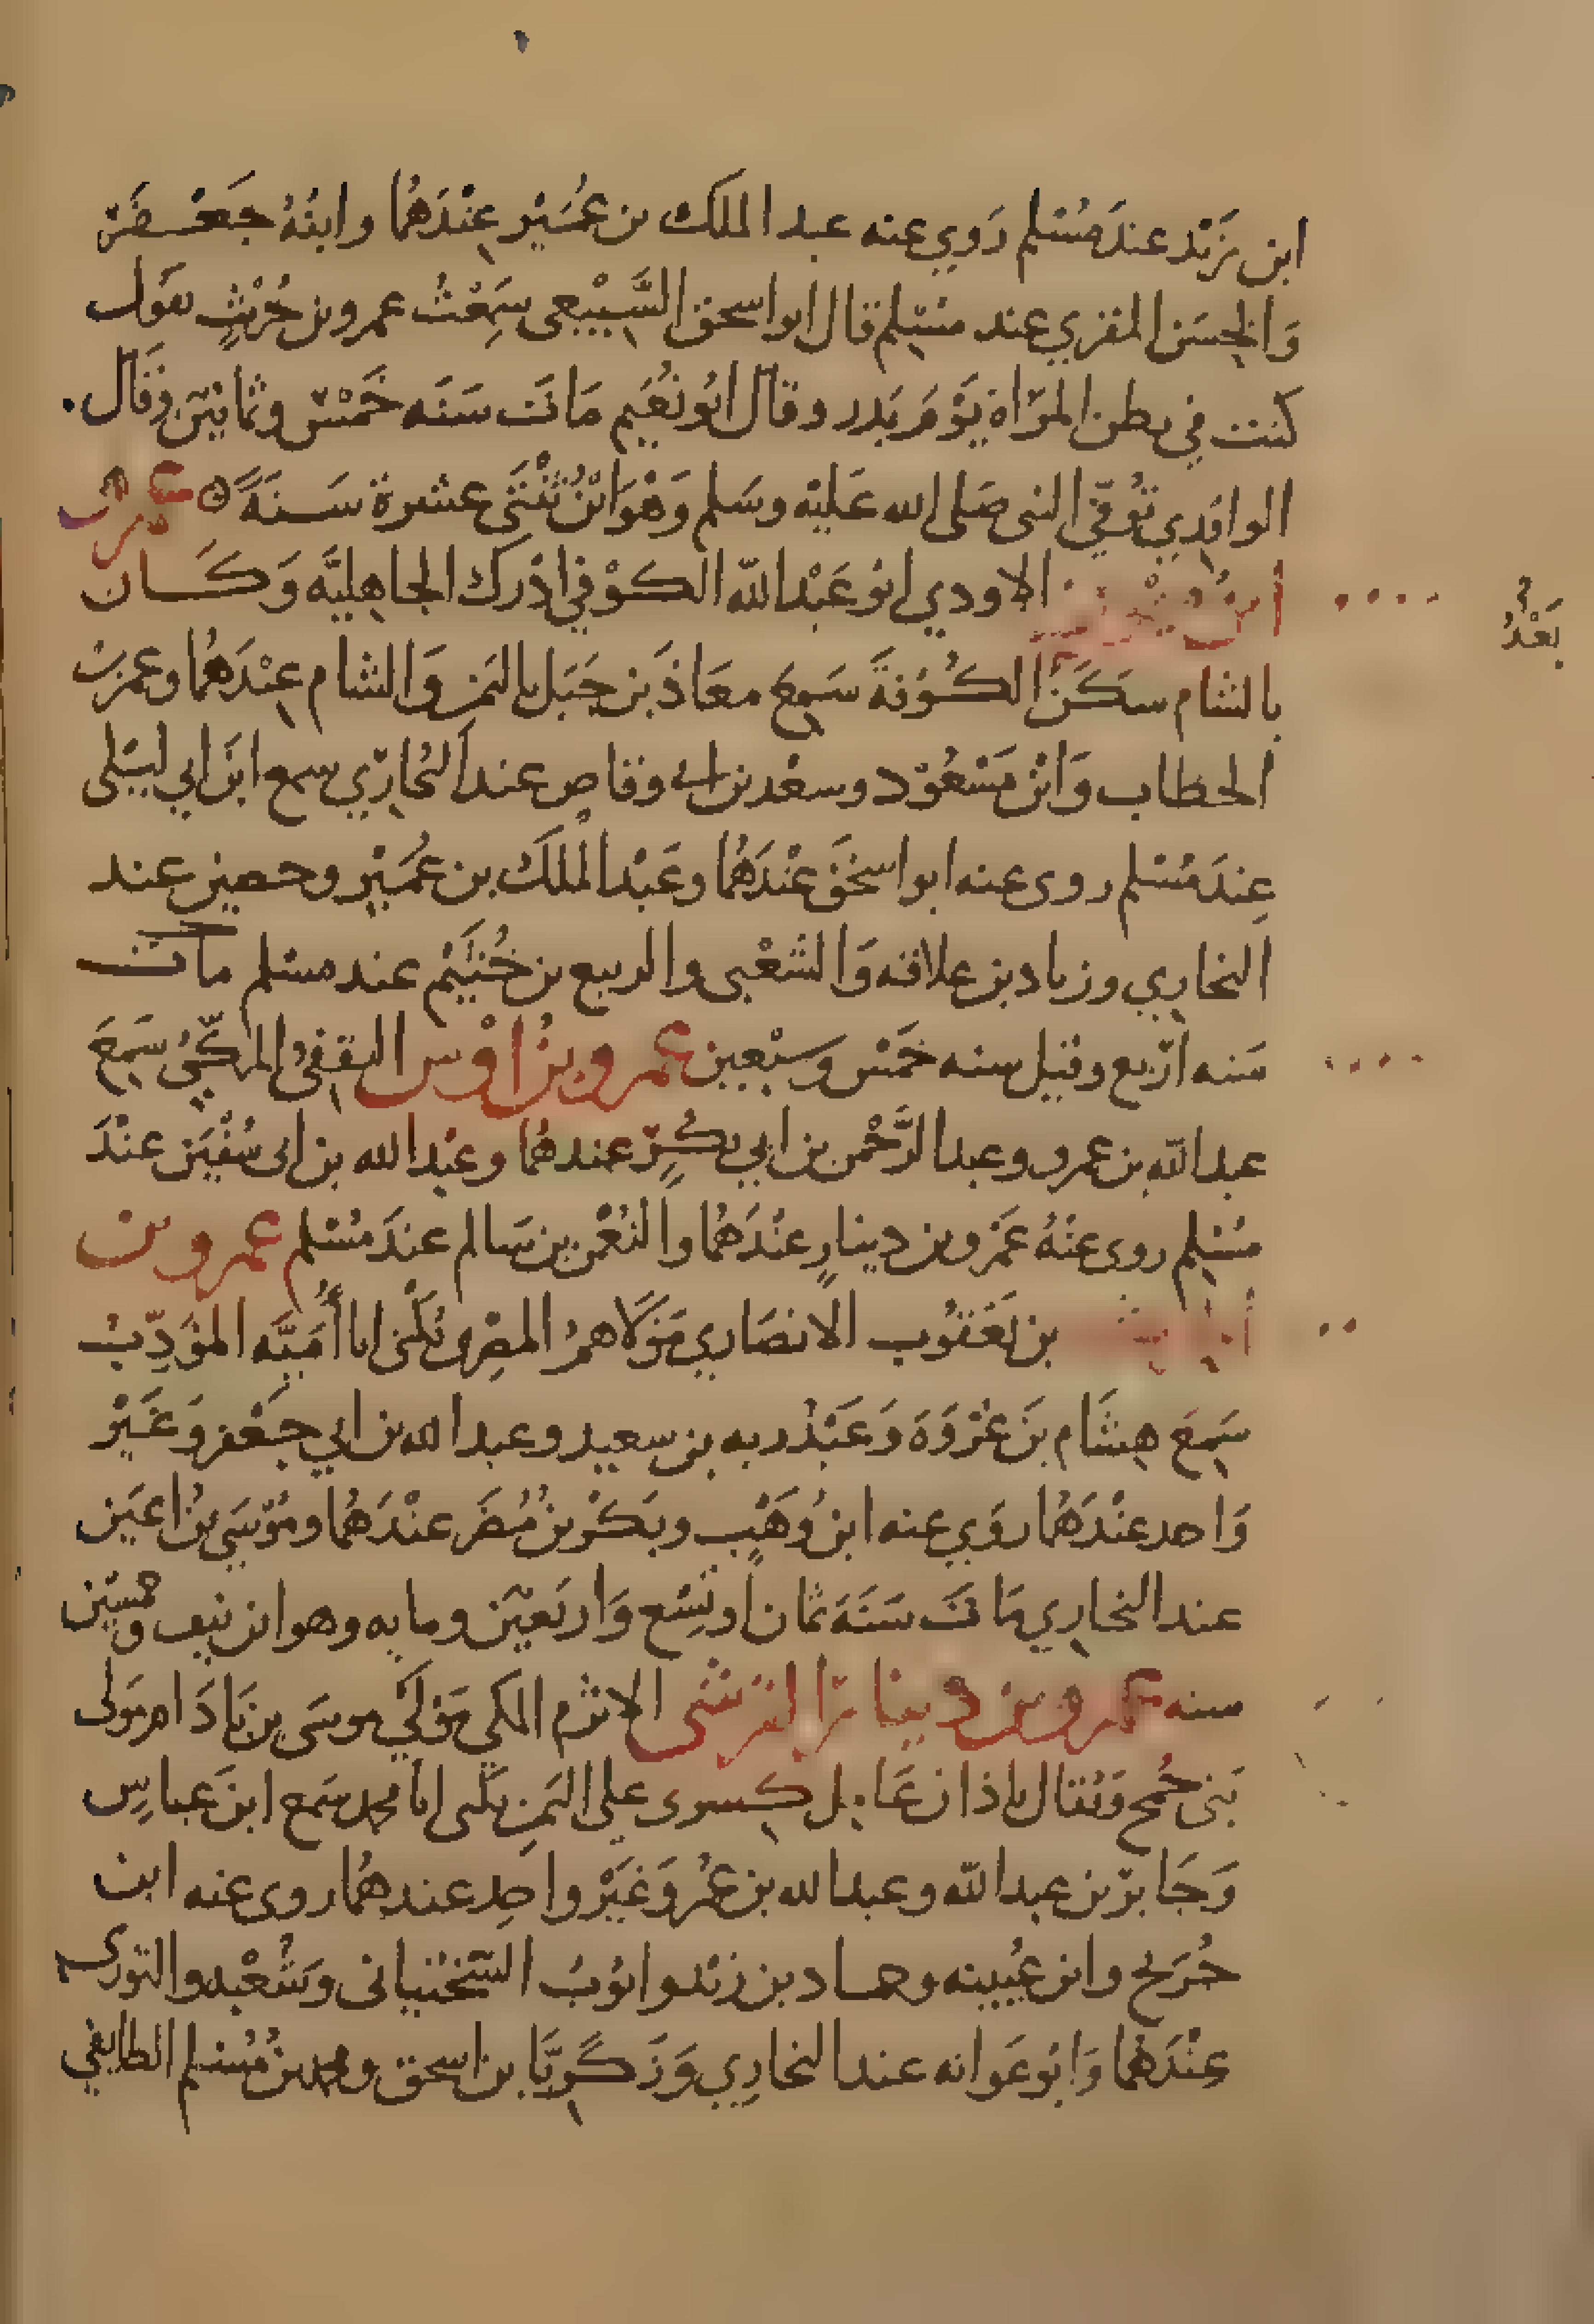 ابن زَيْد عندَ مُسْلِم رَوى عنه عبد الملك بن عُمَيْر عِنْدَهُمَا وابنُهُ جَعْفَر
وَالحَسَن العُرَنِي عند مُسْلِم قال ابو اسحق السَّبِيْعِي سَمِعْتُ عمرو بن حُرَيْثٍ يقول
كنت في بطن المرْاة يَوْمَ بَدر وقال ابُو نُعَيم مَاتَ سَنَه خَمْسٍ وثمانِيْن وقَال
الواقِدِي تُوُفِّيَ النبي صَلى الله عَلَيْه وسَلم وَهْوَ ابْنُ ثِنْتَي عشرة سَنَةً عمرو
ابن مَيْمُون الاودي ابُو عَبْد الله الكوْفِي ادْرَك الجاهِليَّه وَكَان
بالشام سَكَنَ الكُوْفةَ سَمِعَ معَاذَ بن جَبَل باليَمَن وَالشام عِنْدَهُمَا وعمر بن
الخطاب وَابْنَ مَسْعُوْد وسعْد بن ابي وقاص عند البُخارِي سمع ابنَ ابي ليْلَى
عِندَ مُسْلم روى عنه ابو اسْحَقَ عِنْدَهُمَا وعَبْد الملك بن عُمَيْر وحصين عند
البخارِي وزياد بن علاقه وَالشَّعْبِي والربيع بن خُثَيْم عند مسلم مات
سَنه ارْبع وقيل سنه خَمْس وسَبْعِين عمرو بنُ اوْس الثقفيُّ المَكِّيُّ سَمِعَ
عبد الله بن عمرو وعبد الرَّحْمن بن ابي بكْرٍ عندهُما وعَبْد الله بن ابي سُفْيَن عنْدَ
مُسْلِم روى عنْهُ عَمْرو بن دينارٍ عنْدَهُمَا والنعْمن بن سَالم عندَ مُسْلم عمرو بن
الحارث بن يَعْقُوب الانصَارِي مَوْلاهُمُ المصْرِي يُكْنَى ابا أُمَيَّه المُؤَدِّبُ
سَمِعَ هِشَام بنَ عُرْوَةَ وَعَبْد ربه بن سعِيد وعبد الله بن ابي جَعْفر وَغَيْر
وَاحد عنْدَهُمَا رَوَى عنه ابنُ وَهْبٍ وبَكْر بنُ مُضَر عنْدَهُمَا ومُوْسَى بنُ اعْيَن
عند البخارِي مَاتَ سَنَةَ ثمان او تسْعٍ وَارْبَعيْن ومايه وهو ابن نيف وخمسِيْن
سنه عمرو بن دينارٍ القرشي الاثرم المكي مَوْلَى موسَى بن بَاذَام مَوْلى
بَني جُمح وَيُقال باذان عَامِل كِسْرى على اليَمَن يكْنى ابا محمد سَمع ابنَ عباسٍ
وَجَابرَ بن عبد الله وعبد الله بن عُمَر وَغيْر واحِدٍ عندهُما روى عنه ابن
جُرَيْج وابن عُيَيْنه وحماد بن زيْد وايُوْبُ السَّخْتِياني وَشُعْبه والثوْري
عنْدَهُمَا وَابُو عَوانه عند البخارِي وَزَكَرِيَّا بن اسحق ومحمد بن مُسْلم الطايفي
بَعْدُ